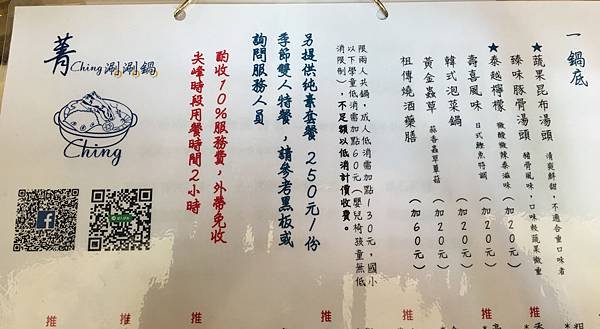 一鍋底
★蔬果昆布湯頭 清爽鮮甜，不適合重口味者
臻味豚骨湯頭 豬骨風味，口味較蔬果微重
★泰越檸檬 微酸微辣泰滋味 (加20元)
壽喜風味 日式鰹魚特調 (加20元)
★韓式泡菜鍋 (加20元)
黃金蟲草 蒜香蟲草蕈菇 (加20元)
祖傳燒酒藥膳 (加60元)
限兩人共鍋，成人低消需加點130元，國小
以下學童低消需加點60元(嬰兒椅孩童無低
消限制)，不足額以低消計價收費。
另提供純素套餐 250元/1份
季節雙人特餐，請參考黑板或
詢問服務人員
酌收10%服務費，外帶免收
尖峰時段用餐時間2小時
菁Ching涮涮鍋
Ching
推
推
推
推
推
推